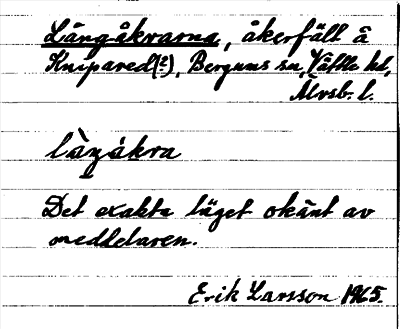 Långåkrarna, åkerfält å
Knipared(?), Bergums sn, Vättle hd,
Älvsb. l.
làŋákra
Det exakta läget okänt av
meddelaren.
Erik Larsson 1965.